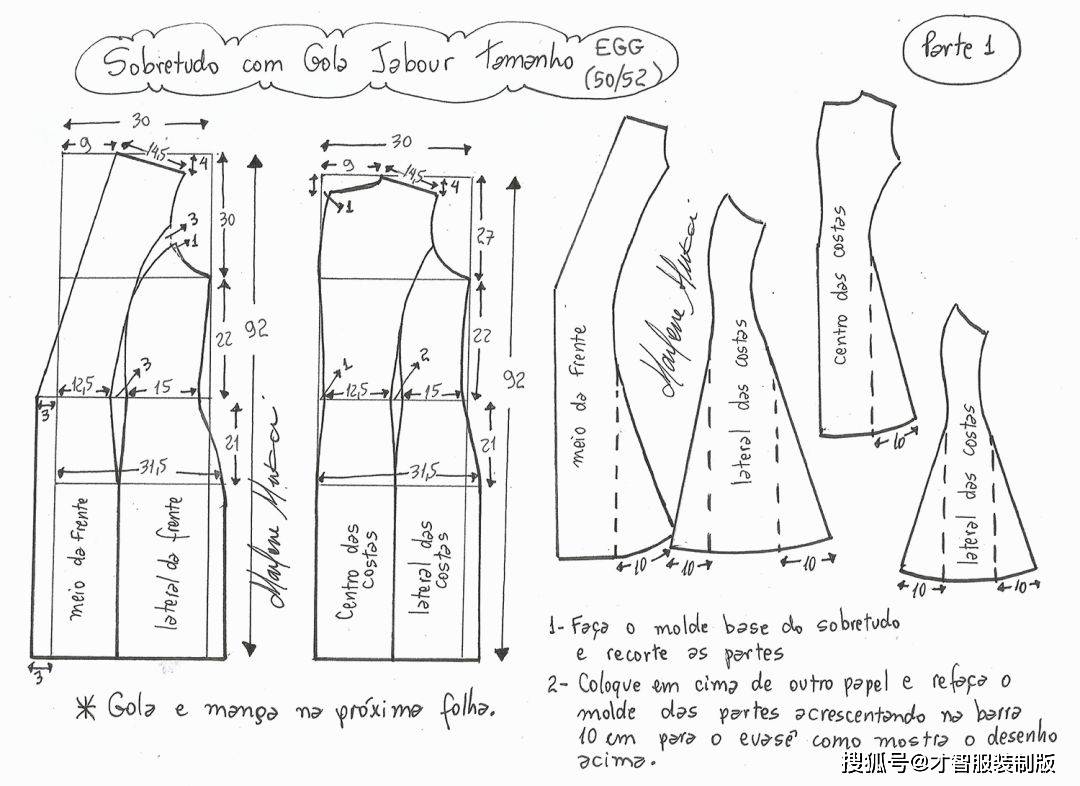 Sobretudo com Gola Jabour Tamanho EGG (50/52)
Parte 1
30
9
14,5
4
30
3
1
22
92
3
12,5
15
3
21
31,5
meio da frente
lateral da frente
3
30
9
14,5
4
1
27
22
92
1
2
12,5
15
21
31,5
Centro das costas
lateral das costas
Marlene Mukai
meio da frente
10
Marlene Mukai
lateral das costas
10
10
centro das costas
10
lateral das costas
10
10
* Gola e manga na próxima folha.
1- Faça o molde base do sobretudo
e recorte as partes
2- Coloque em cima de outro papel e refaça o
molde das partes acrescentando na barra
10 cm para o evasê como mostra o desenho
acima.
搜狐号@才智服装制版